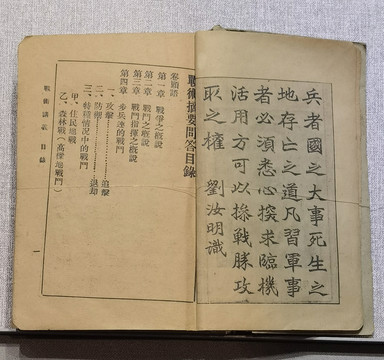 兵者國之大事死生之
地存亡之道凡習軍事
者必須悉心探求臨機
活用方可以操戰勝攻
取之權 劉汝明識
戰術摘要問答目錄
卷頭語
第一章 戰爭之概說
第二章 戰鬥之概說
第三章 戰鬥指揮之概說
第四章 步兵連的戰鬥
一、攻擊…………追擊
二、防禦…………退却
三、特種情況中的戰鬥
甲、住民地戰
乙、森林戰(高粱地戰鬥)
戰術講義 目錄
一